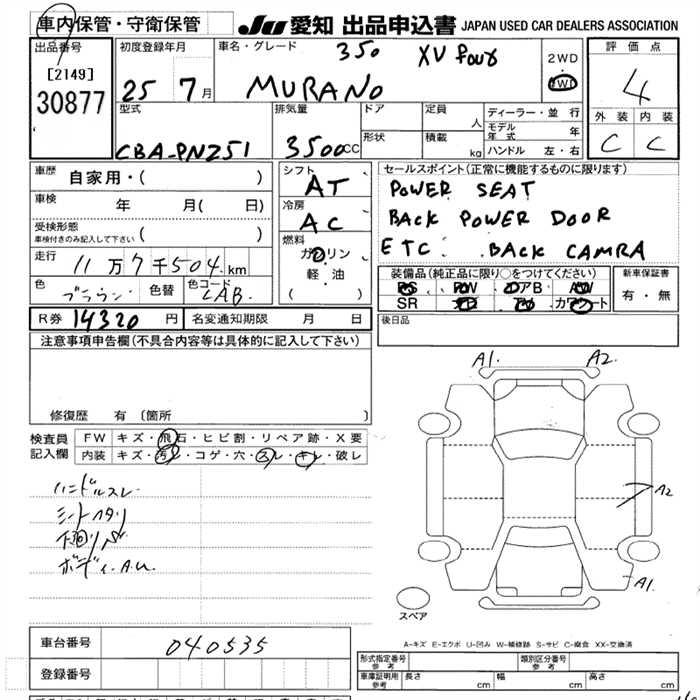 車内保管・守衛保管 JU 愛知 出品申込書 JAPAN USED CAR DEALERS ASSOCIATION
出品番号
[2149]
30877
初度登録年月
25 7月
車名・グレード
350 XV four
MURANO
2WD
4WD
評価点
4
外装 内装
C C
型式
CBA-PNZ51
排気量
3500cc
ドア
形状
定員 人
積載 kg
ディーラー・並行
モデル年式 年
ハンドル 左・右
車歴 自家用・( )
車検 年 月( 日)
受検形態
車検付きのみ記入して下さい ( )
走行 11万7千504km
色 ブラウン 色替 色コード CAB
シフト AT
冷房 AC
燃料
ガソリン
軽・油
( )
セールスポイント(正常に機能するものに限ります)
POWER SEAT
BACK POWER DOOR
ETC. BACK CAMRA
装備品(純正品に限り○をつけてください)
PS PW エアB AW
SR ナビ TV カワシート
新車保証書
有・無
R券 14320円 名変通知期限 月 日
後日品
注意事項申告欄(不具合内容等は具体的に記入して下さい)
修復歴 有 〔箇所 〕
検査員記入欄
FW キズ・飛石・ヒビ割・リペア跡・X要
内装 キズ・汚レ・コゲ・穴・スレ・キレ・破レ
ハンドルスレ
シートヘタリ
下回りサビ
ボディ A.U.
A1. A2.
A2
A1.
スペア
A-キズ E-エクボ U-凹み W-補修跡 S-サビ C-腐食 XX-交換済
車台番号 040535
登録番号
形式指定番号 参考 類別区分番号 参考
車庫証明用 参考 長さ cm 幅 cm 高さ cm